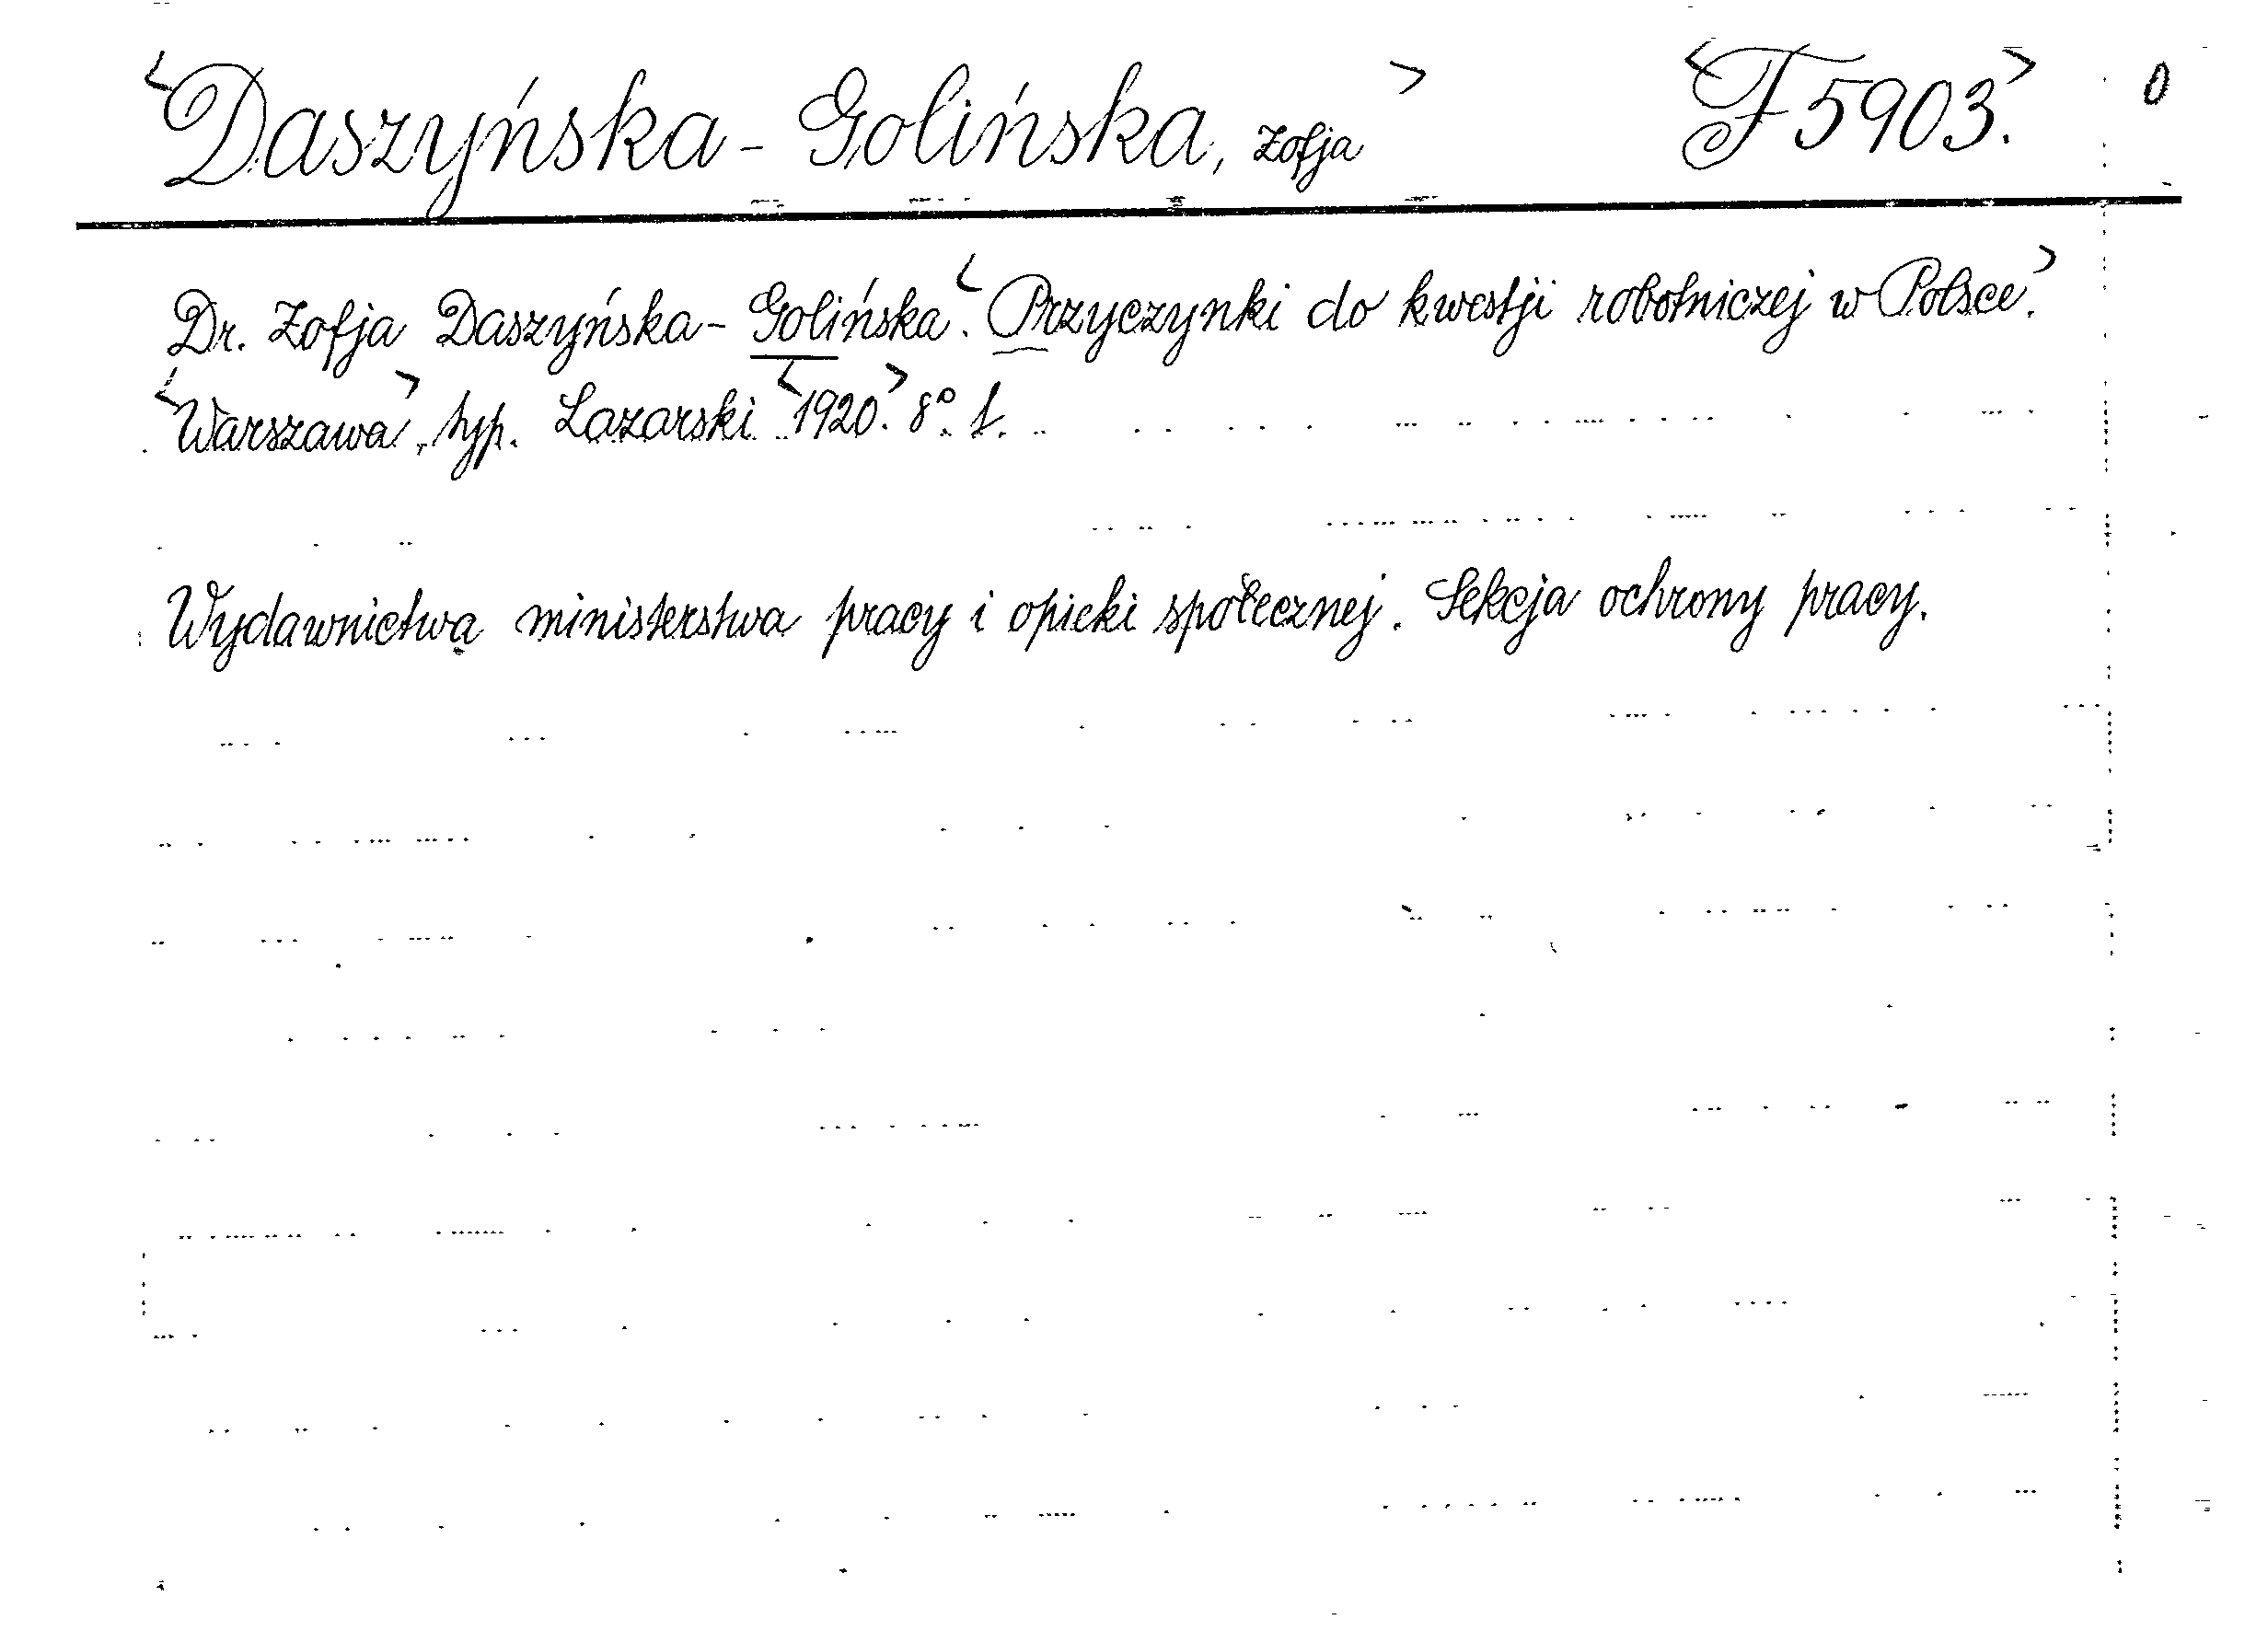 <Daszyńska-Golińska, Zofja> <F 5903.> 0
Dr. Zofja Daszyńska-Golińska. <Przyczynki do kwestji robotniczej w Polsce.>
<Warszawa>, typ. Lazarski <1920.> 8° f.
Wydawnictwa ministerstwa pracy i opieki społecznej. Sekcja ochrony pracy.